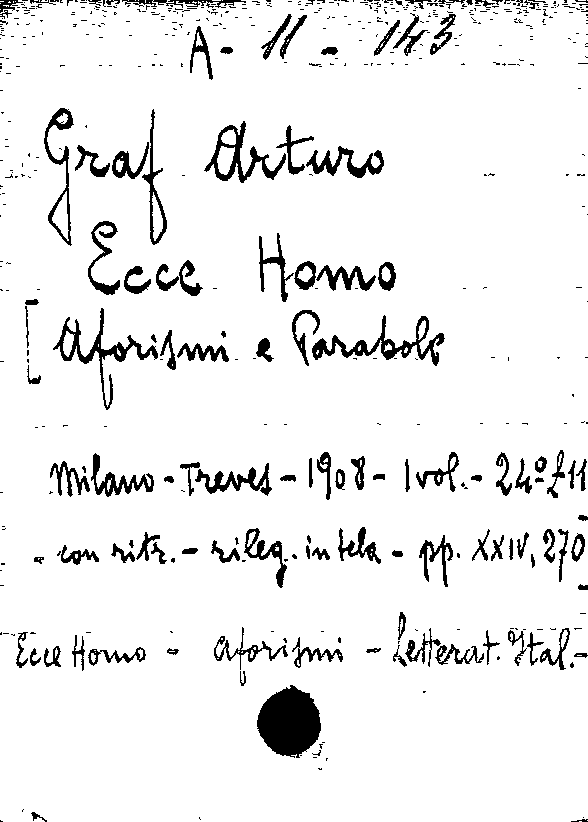 A - 11 - 143
Graf Arturo
Ecce Homo
[ Aforismi e Parabole
Milano - Treves - 1908 - 1 vol. - 24º £ 11
- con ritr. - rileg. in tela - pp. XXIV, 270
Ecce Homo - Aforismi - Letterat. Ital. -